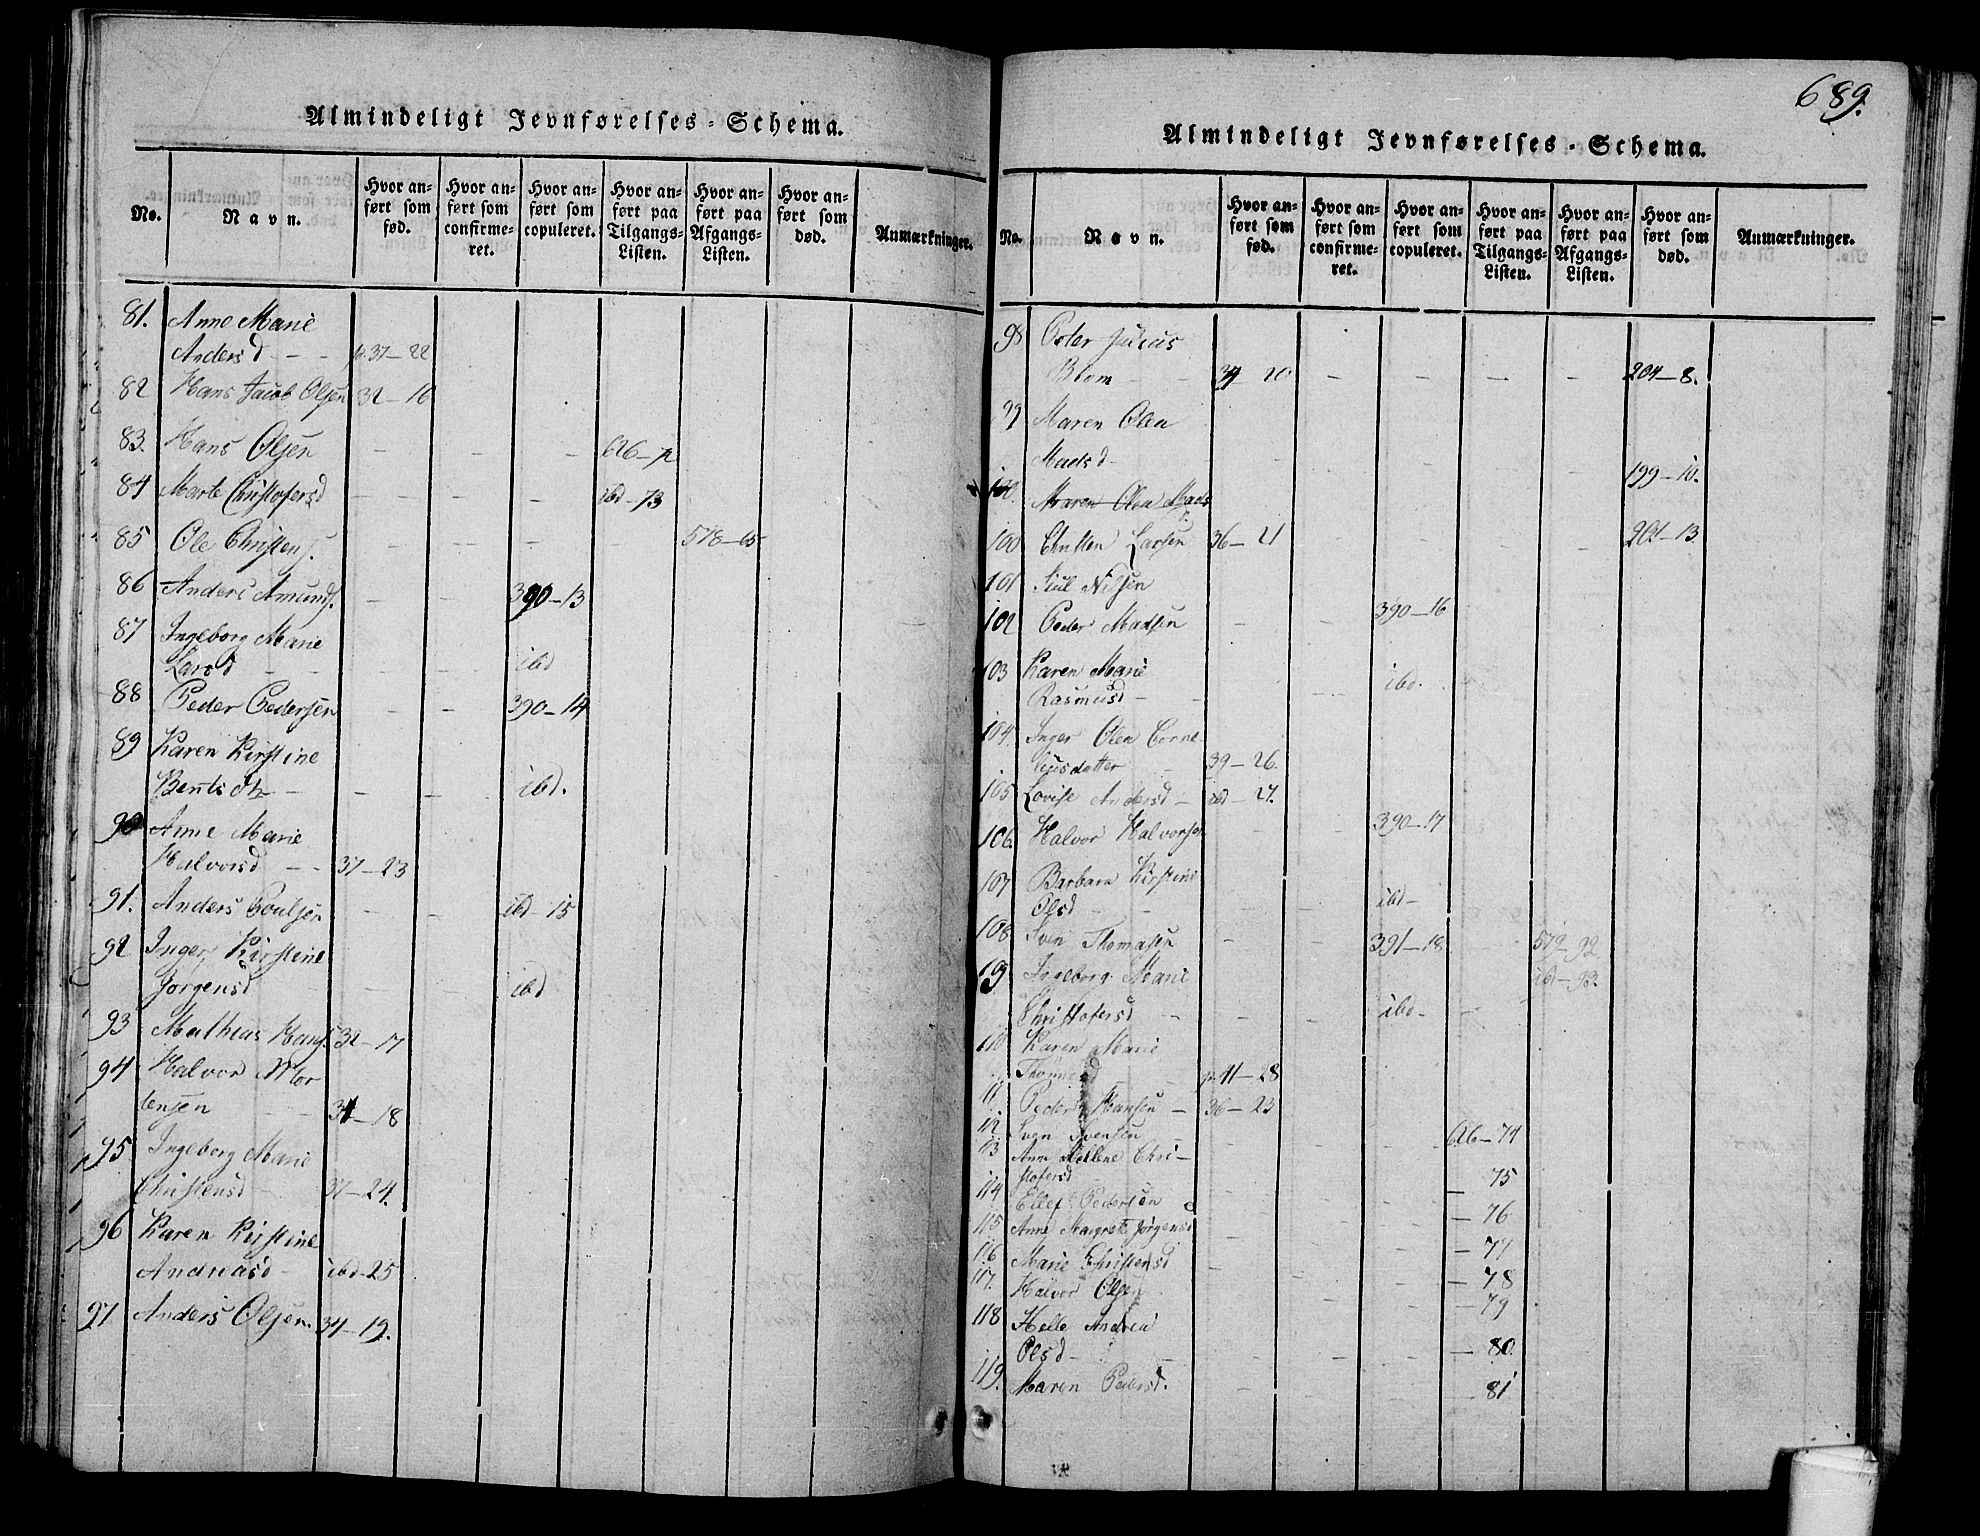 Almindeligt Jevnførelses-Schema.
No.
Navn.
Hvor an-
ført som
fød.
Hvor an-
ført som
confirme-
ret.
Hvor an-
ført som
copuleret.
Hvor an-
ført paa
Tilgangs-
Listen.
Hvor an-
ført paa
Afgangs-
Listen.
Hvor an-
ført som
død.
Anmærkninger.
81. Anne Marie
Andersd - - p. 37-22
82 Hans Jacob Olsen 32-16
83. Hans Olsen - - - 626-72
84 Marte Christofersd - - - ibd-73
85 Ole Christens. - - - - 578-65
86 Anders Amunds. - - 390-13
87 Ingeborg Marie
Larsd - - - - ibd
88 Peder Pedersen - - 390-14
89 Karen Kirstine
Bentsdtr - - - ibd.
90 Anne Marie
Halvorsd - - 37-23
91. Anders Poulsen - - ibd-15
92 Inger Kirstine
Jørgensd - - - ibd
93 Mathias Hans. 32-17
94 Halvor Mor
tensen - - 34-18
95 Ingeborg Marie
Christensd - 37-24.
96 Karen Kirstine
Andreasd - ibd-25
97 Anders Olsen. 34-19.
689.
Almindeligt Jevnførelses-Schema.
No.
Navn.
Hvor an-
ført som
fød.
Hvor an-
ført som
confirme-
ret.
Hvor an-
ført som
copuleret.
Hvor an-
ført paa
Tilgangs-
Listen.
Hvor an-
ført paa
Afgangs-
Listen.
Hvor an-
ført som
død.
Anmærkninger.
98 Peter Julius
Blom - - 34 20 - - - - 204-8.
99 Maren Olea
Madsd - - - - - - 199-10.
100. Maren Olea Mads
100 Larsen 36-21 - - - - 201-13
101 Nilsen
102 Peder Madsen - - 390-16
103 Karen Marie
Rasmusd - - - - ibd.
104. Inger Olea Corne-
liusdatter - 39-26.
105 Lovise Andersd - ibd-27.
106. Halvor Halvorsen - - 390-17
107 Barbara Kirstine
Olsd - - - - ibd-
108 Sven Thomasen - - 391-18. - 579-92
109 Ingeborg Marie ibd-93.
Christofersd - - - ibd- -
110 Karen Marie
- - p. 41-28
11 Peder Hansen - 36-23
112 Sven Svensen - - - 626-74
13 Anne Hellene Chri-
stofersd - - - - 75
114 Ellef Pedersen - - - - 76
115 Anne Margrete Jørgensd - - - - 77
116 Marie Christensd - - - - 78
117. Halvor Olsen - - - - 79
118 Helle Andrea
Olsd - - - - - 80.
119. Maren Pedersd. - - - - 81